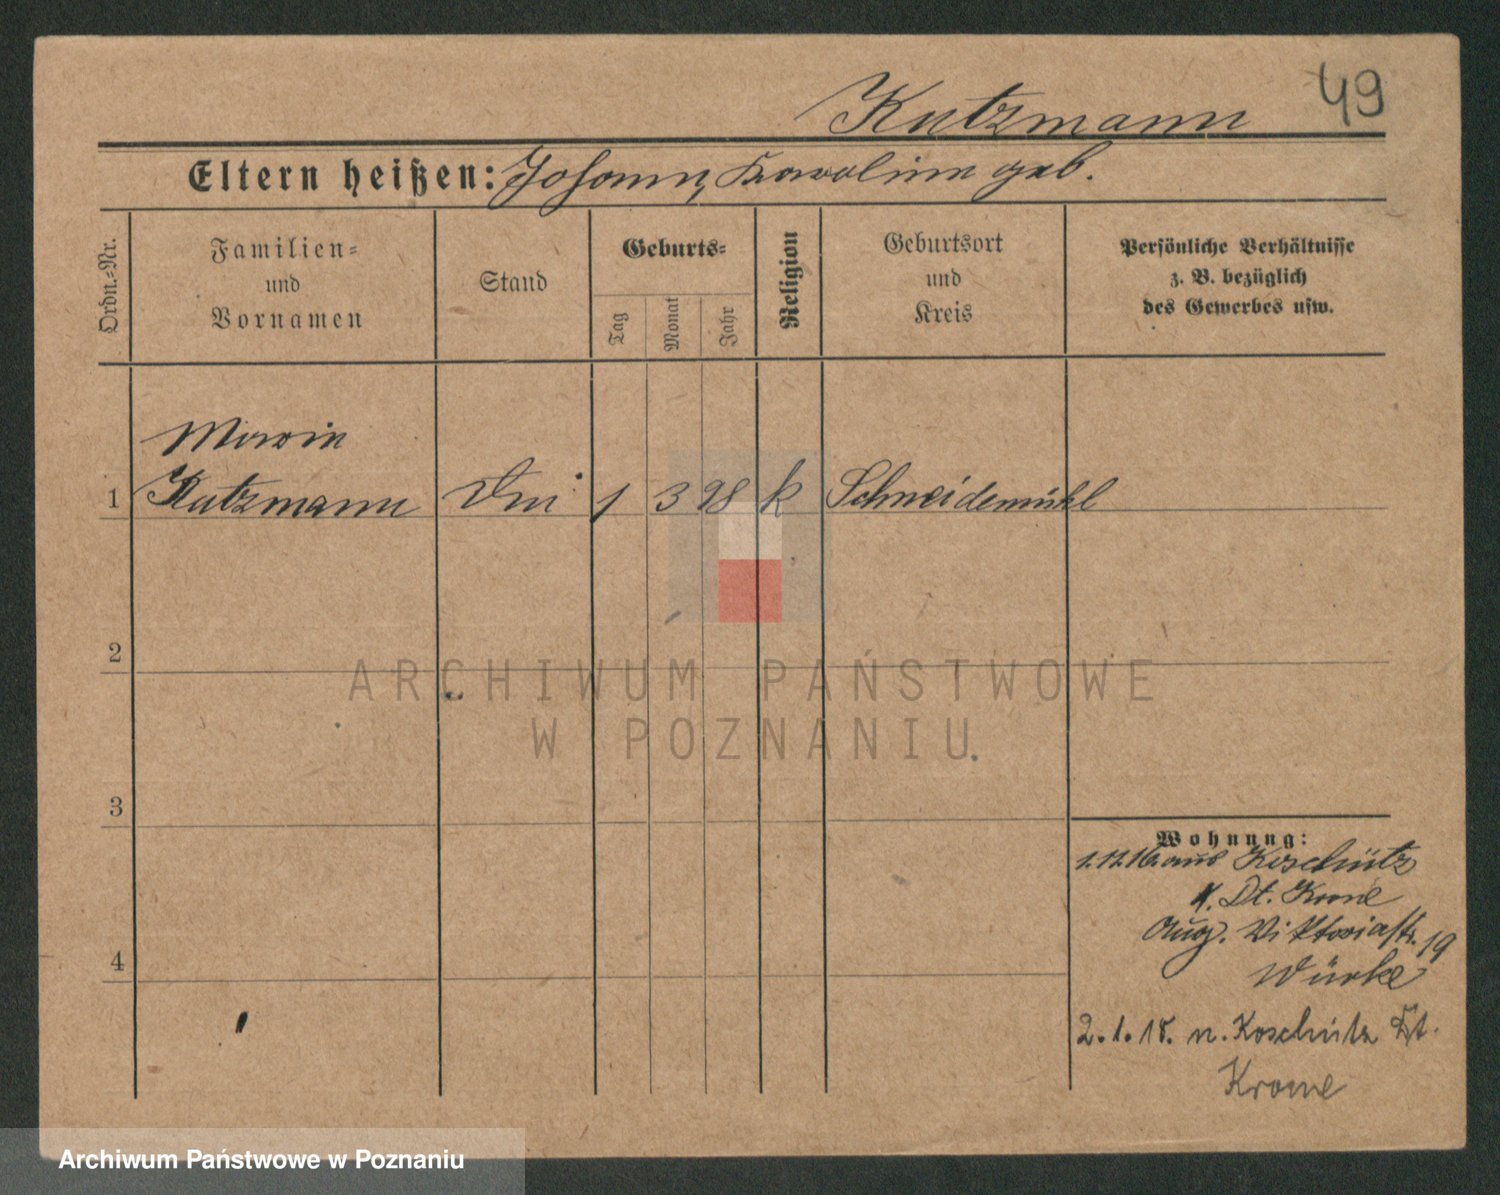 Kutzmann 49
Eltern heißen: Johann, Karoline geb.
Ordn.-Nr.
Familien-
und
Vornamen
Stand
Geburts-
Tag
Monat
Jahr
Religion
Geburtsort
und
Kreis
Persönliche Verhältnisse
z. B. bezüglich
des Gewerbes usw.
Marie
1 Kutzmann 1 3 98 k Schneidemühl
2
ARCHIWUM PAŃSTWOWE
W POZNANIU
3
Wohnung:
1.11.16 aus Koschütz
Dt. Krone
Aug. Viktoriastr. 19
4
2.1.18. n. Koschütz Dt.
Krone
Archiwum Państwowe w Poznaniu